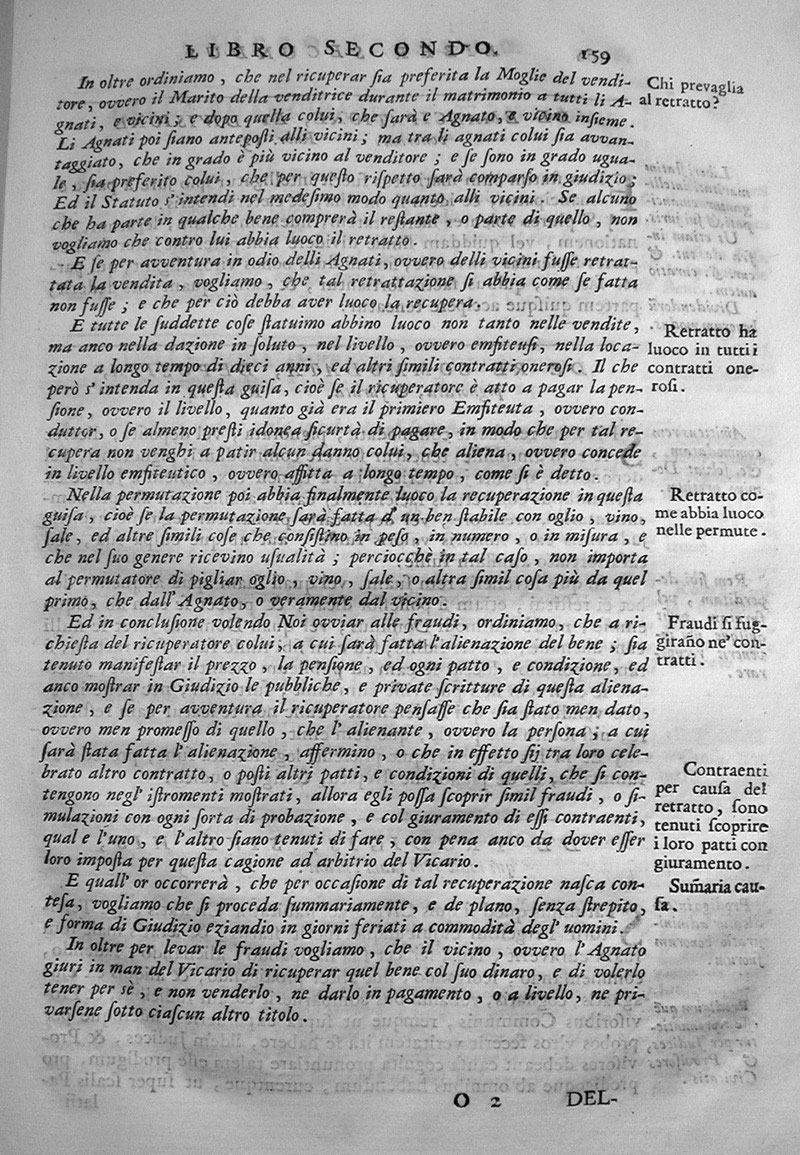 LIBRO SECONDO. 159
In oltre ordiniamo, che nel ricuperar ſia preferita la Moglie del vendi-
tore, ovvero il Marito della venditrice durante il matrimonio a tutti li A-
gnati, e vicini; e dopo quella colui, che ſarà e Agnato, e vicino inſieme.
Li Agnati poi ſiano antepoſti alli vicini; ma tra li agnati colui ſia avvan-
taggiato, che in grado è più vicino al venditore; e ſe ſono in grado ugua-
le, ſia preferito colui, che per queſto riſpetto ſarà comparſo in giudizio;
Ed il Statuto s'intendi nel medeſimo modo quanto alli vicini. Se alcuno
che ha parte in qualche bene comprerà il reſtante, o parte di quello, non
vogliamo che contro lui abbia luoco il retratto.
E ſe per avventura in odio delli Agnati, ovvero delli vicini fuſſe retrat-
tata la vendita, vogliamo, che tal retrattazione ſi abbia come ſe fatta
non fuſſe; e che per ciò debba aver luoco la recupera.
E tutte le ſuddette coſe ſtatuimo abbino luoco non tanto nelle vendite,
ma anco nella dazione in ſoluto, nel livello, ovvero emfiteuſi, nella loca-
zione a longo tempo di dieci anni, ed altri ſimili contratti oneroſi. Il che
però s'intenda in queſta guiſa, cioè ſe il ricuperatore è atto a pagar la pen-
ſione, ovvero il livello, quanto già era il primiero Emfiteuta, ovvero con-
duttor, o ſe almeno preſti idonea ſicurtà di pagare, in modo che per tal re-
cupera non venghi a patir alcun danno colui, che aliena, ovvero concede
in livello emfiteutico, ovvero affitta a longo tempo, come ſi è detto.
Nella permutazione poi abbia finalmente luoco la recuperazione in queſta
guiſa, cioè ſe la permutazione ſarà fatta d'un ben ſtabile con oglio, vino,
ſale, ed altre ſimili coſe che conſiſtino in peſo, in numero, o in miſura, e
che nel ſuo genere ricevino uſualità; perciocchè in tal caſo, non importa
al permutatore di pigliar oglio, vino, ſale, o altra ſimil coſa più da quel
primo, che dall'Agnato, o veramente dal vicino.
Ed in concluſione volendo Noi ovviar alle fraudi, ordiniamo, che a ri-
chieſta del ricuperatore colui, a cui ſarà fatta l'alienazione del bene; ſia
tenuto manifeſtar il prezzo, la penſione, ed ogni patto, e condizione, ed
anco moſtrar in Giudizio le pubbliche, e private ſcritture di queſta aliena-
zione, e ſe per avventura il ricuperatore penſaſſe che ſia ſtato men dato,
ovvero men promeſſo di quello, che l'alienante, ovvero la perſona; a cui
ſarà ſtata fatta l'alienazione, affermino, o che in effetto ſij tra loro cele-
brato altro contratto, o poſti altri patti, e condizioni di quelli, che ſi con-
tengono negl'iſtromenti moſtrati, allora egli poſſa ſcoprir ſimil fraudi, o ſi-
mulazioni con ogni ſorta di probazione, e col giuramento di eſſi contraenti,
qual e l'uno, e l'altro ſiano tenuti di fare, con pena anco da dover eſſer
loro impoſta per queſta cagione ad arbitrio del Vicario.
E quall'or occorrerà, che per occaſione di tal recuperazione naſca con-
teſa, vogliamo che ſi proceda ſummariamente, e de plano, ſenza ſtrepito,
e forma di Giudizio eziandio in giorni feriati a commodità degl'uomini.
In oltre per levar le fraudi vogliamo, che il vicino, ovvero l'Agnato
giuri in man del Vicario di ricuperar quel bene col ſuo dinaro, e di volerlo
tener per sè, e non venderlo, ne darlo in pagamento, o a livello, ne pri-
varſene ſotto ciaſcun altro titolo.
Chi prevaglia
al retratto?
Retratto ha
luoco in tutti i
contratti one-
roſi.
Retratto co-
me abbia luoco
nelle permute.
Fraudi ſi fug-
girano ne' con-
tratti.
Contraenti
per cauſa del
retratto, ſono
tenuti ſcoprire
i loro patti con
giuramento.
Sum̃aria cau-
ſa.
O 2 DEL-